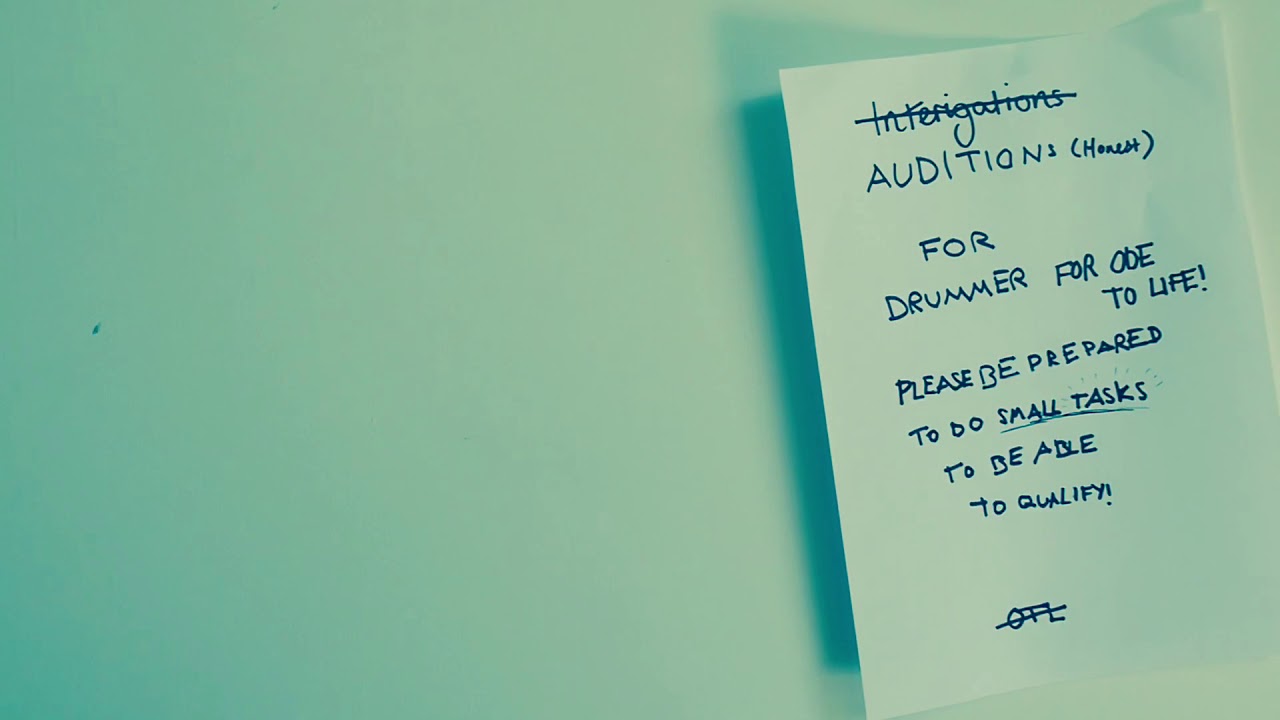 Interigations
AUDITIONS (Honest)
FOR
DRUMMER FOR ODE
TO LIFE!
PLEASE BE PREPARED
TO DO SMALL TASKS
TO BE ABLE
TO QUALIFY!
OTL